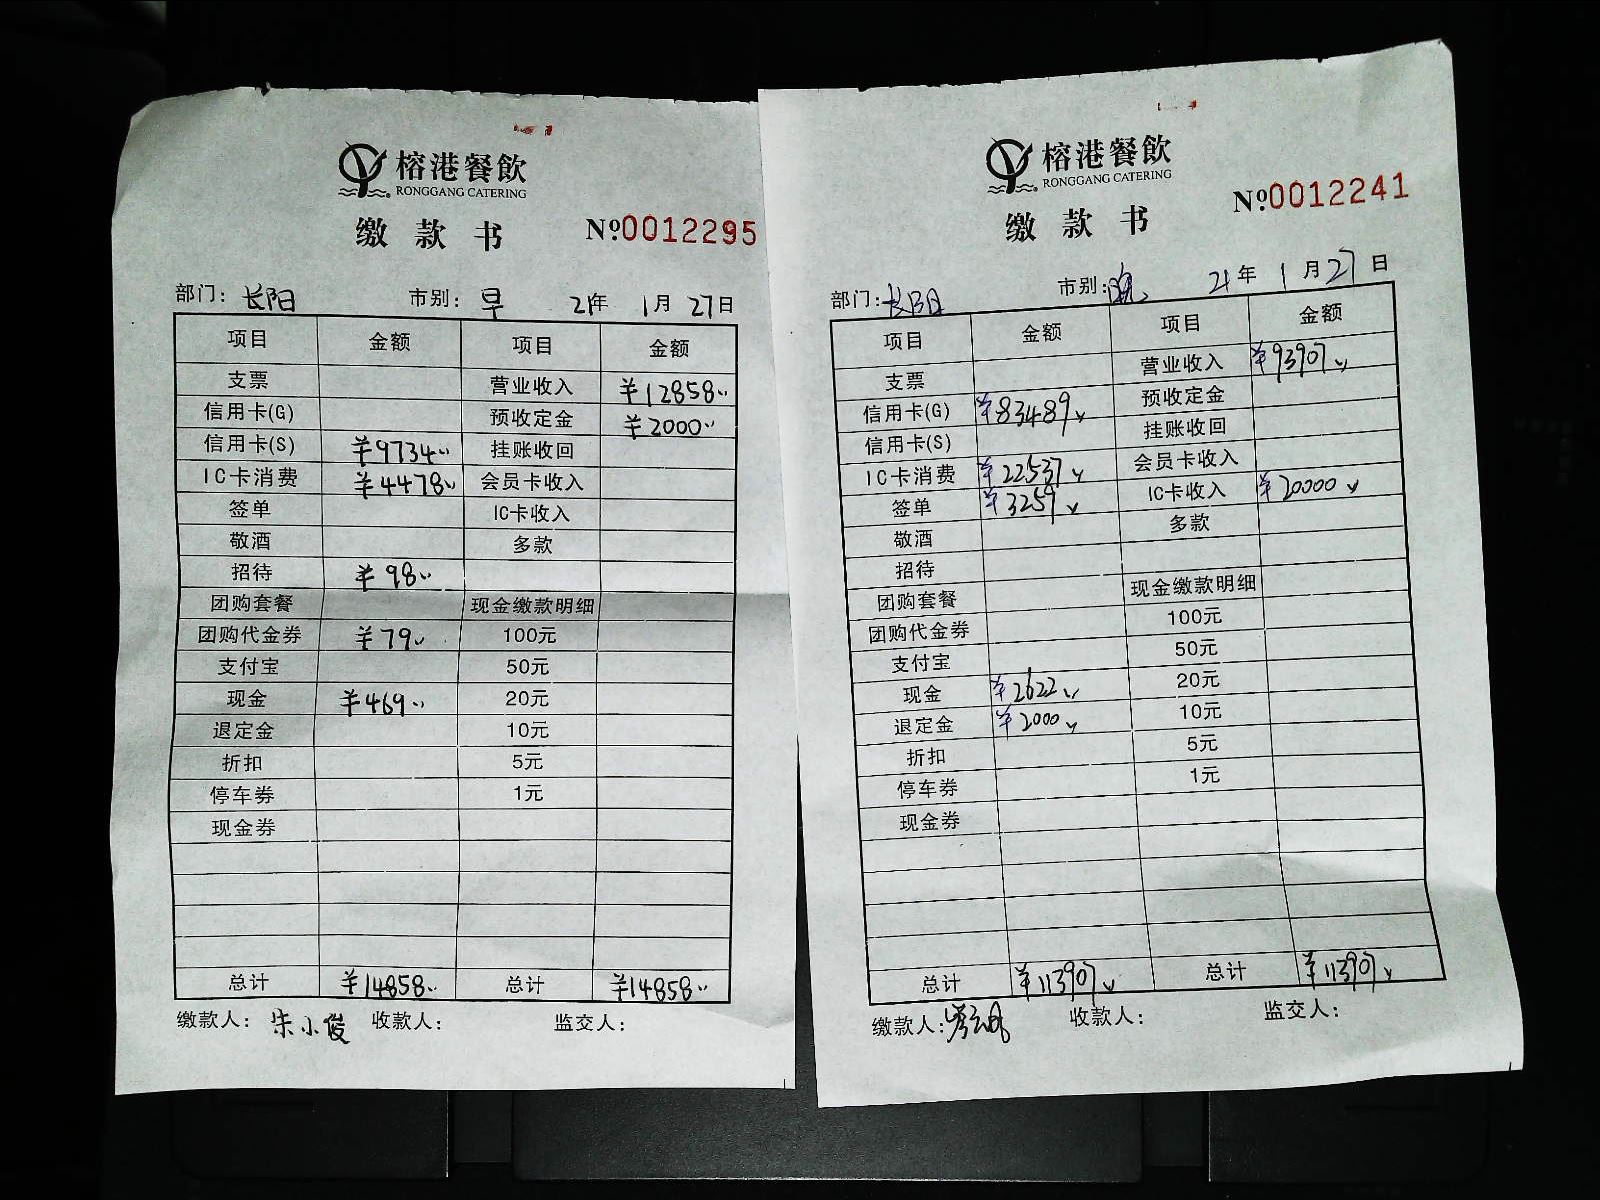 榕港餐飲
RONGGANG CATERING
缴款书 №0012295
部门: 长阳 市别: 早 21年 1月 27日
项目 金额 项目 金额
支票 营业收入 ¥12858
信用卡(G) 预收定金 ¥2000
信用卡(S) ¥9734 挂账收回
IC卡消费 ¥4478 会员卡收入
签单 IC卡收入
敬酒 多款
招待 ¥98
团购套餐 现金缴款明细
团购代金券 ¥79 100元
支付宝 50元
现金 ¥469 20元
退定金 10元
折扣 5元
停车券 1元
现金券
总计 ¥14858 总计 ¥14858
缴款人: 朱小俊 收款人: 监交人:
榕港餐飲
RONGGANG CATERING
缴款书 №0012241
部门: 长阳 市别: 晚 21年 1月 27日
项目 金额 项目 金额
支票 营业收入 ¥93907
信用卡(G) ¥83489 预收定金
信用卡(S) 挂账收回
IC卡消费 ¥22537 会员卡收入
签单 ¥3259 IC卡收入 ¥20000
敬酒 多款
招待
团购套餐 现金缴款明细
团购代金券 100元
支付宝 50元
现金 ¥2622 20元
退定金 ¥2000 10元
折扣 5元
停车券 1元
现金券
总计 ¥113907 总计 ¥113907
缴款人: 收款人: 监交人: